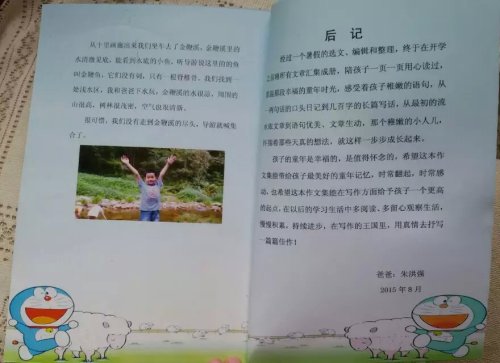 从十里画廊出来我们坐车去了金鞭溪，金鞭溪里的
水清澈见底，能看到水底的小鱼，听导游说这里的的鱼
叫金鞭鱼，它们没有刺，只有一根脊椎骨，我们找到一
处浅水区，我和爸爸下水玩，金鞭溪的水很凉，周围的
山很高，树林很茂密，空气也很清新。
很可惜，我们没有走到金鞭溪的尽头，导游就喊集
合了。
后 记
经过一个暑假的选文、编辑和整理，终于在开学
之前将所有文章汇集成册，陪孩子一页一页用心读过，
那段幸福的童年时光，感受着孩子稚嫩的语句，从
一句话的口头日记到几百字的长篇写话，从最初的流
水账文章到语句优美、文章生动，那个稚嫩的小人儿，
怀揣着那些天真的想法，就这样一步步成长起来。
孩子的童年是幸福的，是值得怀念的，希望这本作
文集能带给孩子最美好的童年记忆，时常翻起，时常感
动，也希望这本作文集能在写作方面给予孩子一个更高
的起点，在以后的学习生活中多阅读、多留心观察生活，
慢慢积累，持续进步，在写作的王国里，用真情去抒写
一篇篇佳作！
爸爸：朱洪强
2015 年 8 月